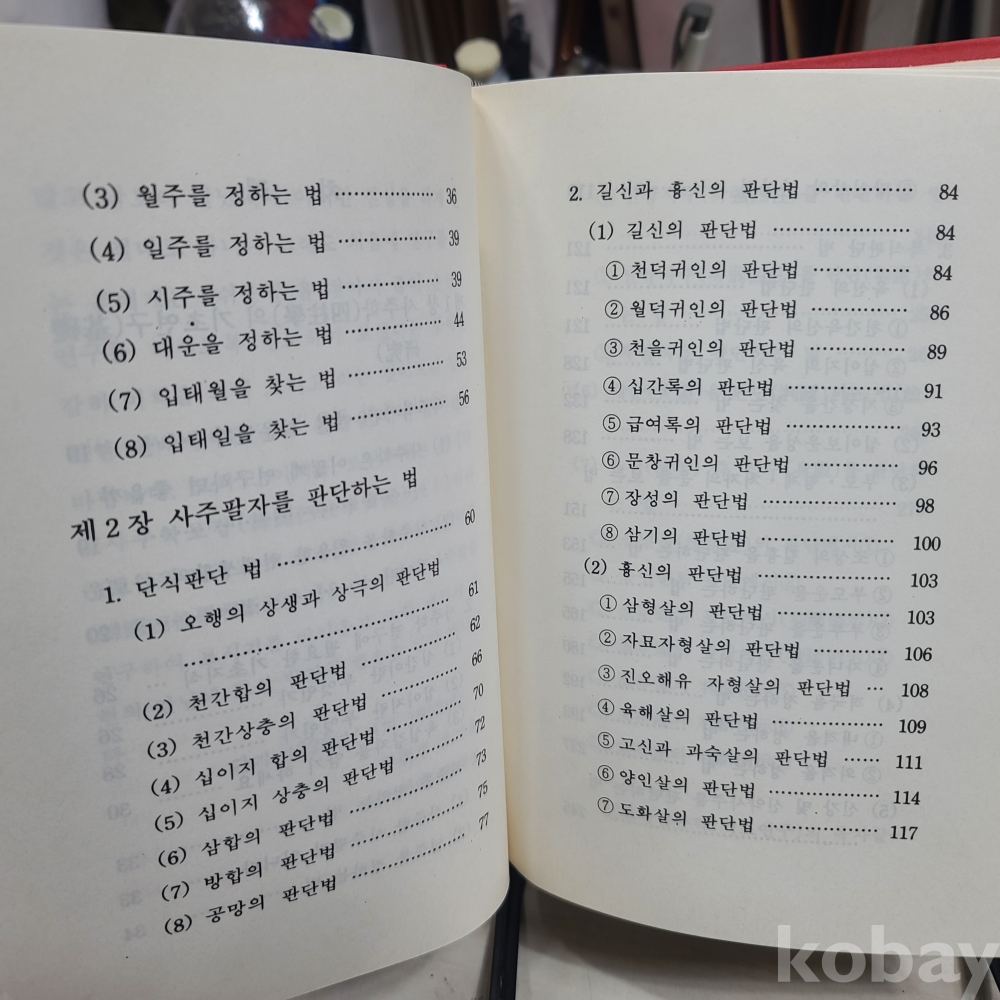 (3) 월주를 정하는 법 ················ 36
(4) 일주를 정하는 법 ················ 39
(5) 시주를 정하는 법 ················ 39
(6) 대운을 정하는 법 ················ 44
(7) 입태월을 찾는 법 ················ 53
(8) 입태일을 찾는 법 ················ 56
제 2 장 사주팔자를 판단하는 법
1. 단식판단 법 ························ 60
(1) 오행의 상생과 상극의 판단법
····································· 61
(2) 천간합의 판단법 ················ 62
(3) 천간상충의 판단법 ············· 66
(4) 십이지 합의 판단법 ··········· 70
(5) 십이지 상충의 판단법 ········ 72
(6) 삼합의 판단법 ··················· 73
(7) 방합의 판단법 ··················· 75
(8) 공망의 판단법 ··················· 77
2. 길신과 흉신의 판단법 ············· 84
(1) 길신의 판단법 ··················· 84
① 천덕귀인의 판단법 ··············· 84
② 월덕귀인의 판단법 ··············· 86
③ 천을귀인의 판단법 ··············· 89
④ 십간록의 판단법 ················· 91
⑤ 급여록의 판단법 ················· 93
⑥ 문창귀인의 판단법 ··············· 96
⑦ 장성의 판단법 ···················· 98
⑧ 삼기의 판단법 ···················· 100
(2) 흉신의 판단법 ··················· 103
① 삼형살의 판단법 ················· 103
② 자묘자형살의 판단법 ············ 106
③ 진오해유 자형살의 판단법 ··· 108
④ 육해살의 판단법 ················· 109
⑤ 고신과 과숙살의 판단법 ······ 111
⑥ 양인살의 판단법 ················· 114
⑦ 도화살의 판단법 ················· 117
kobay